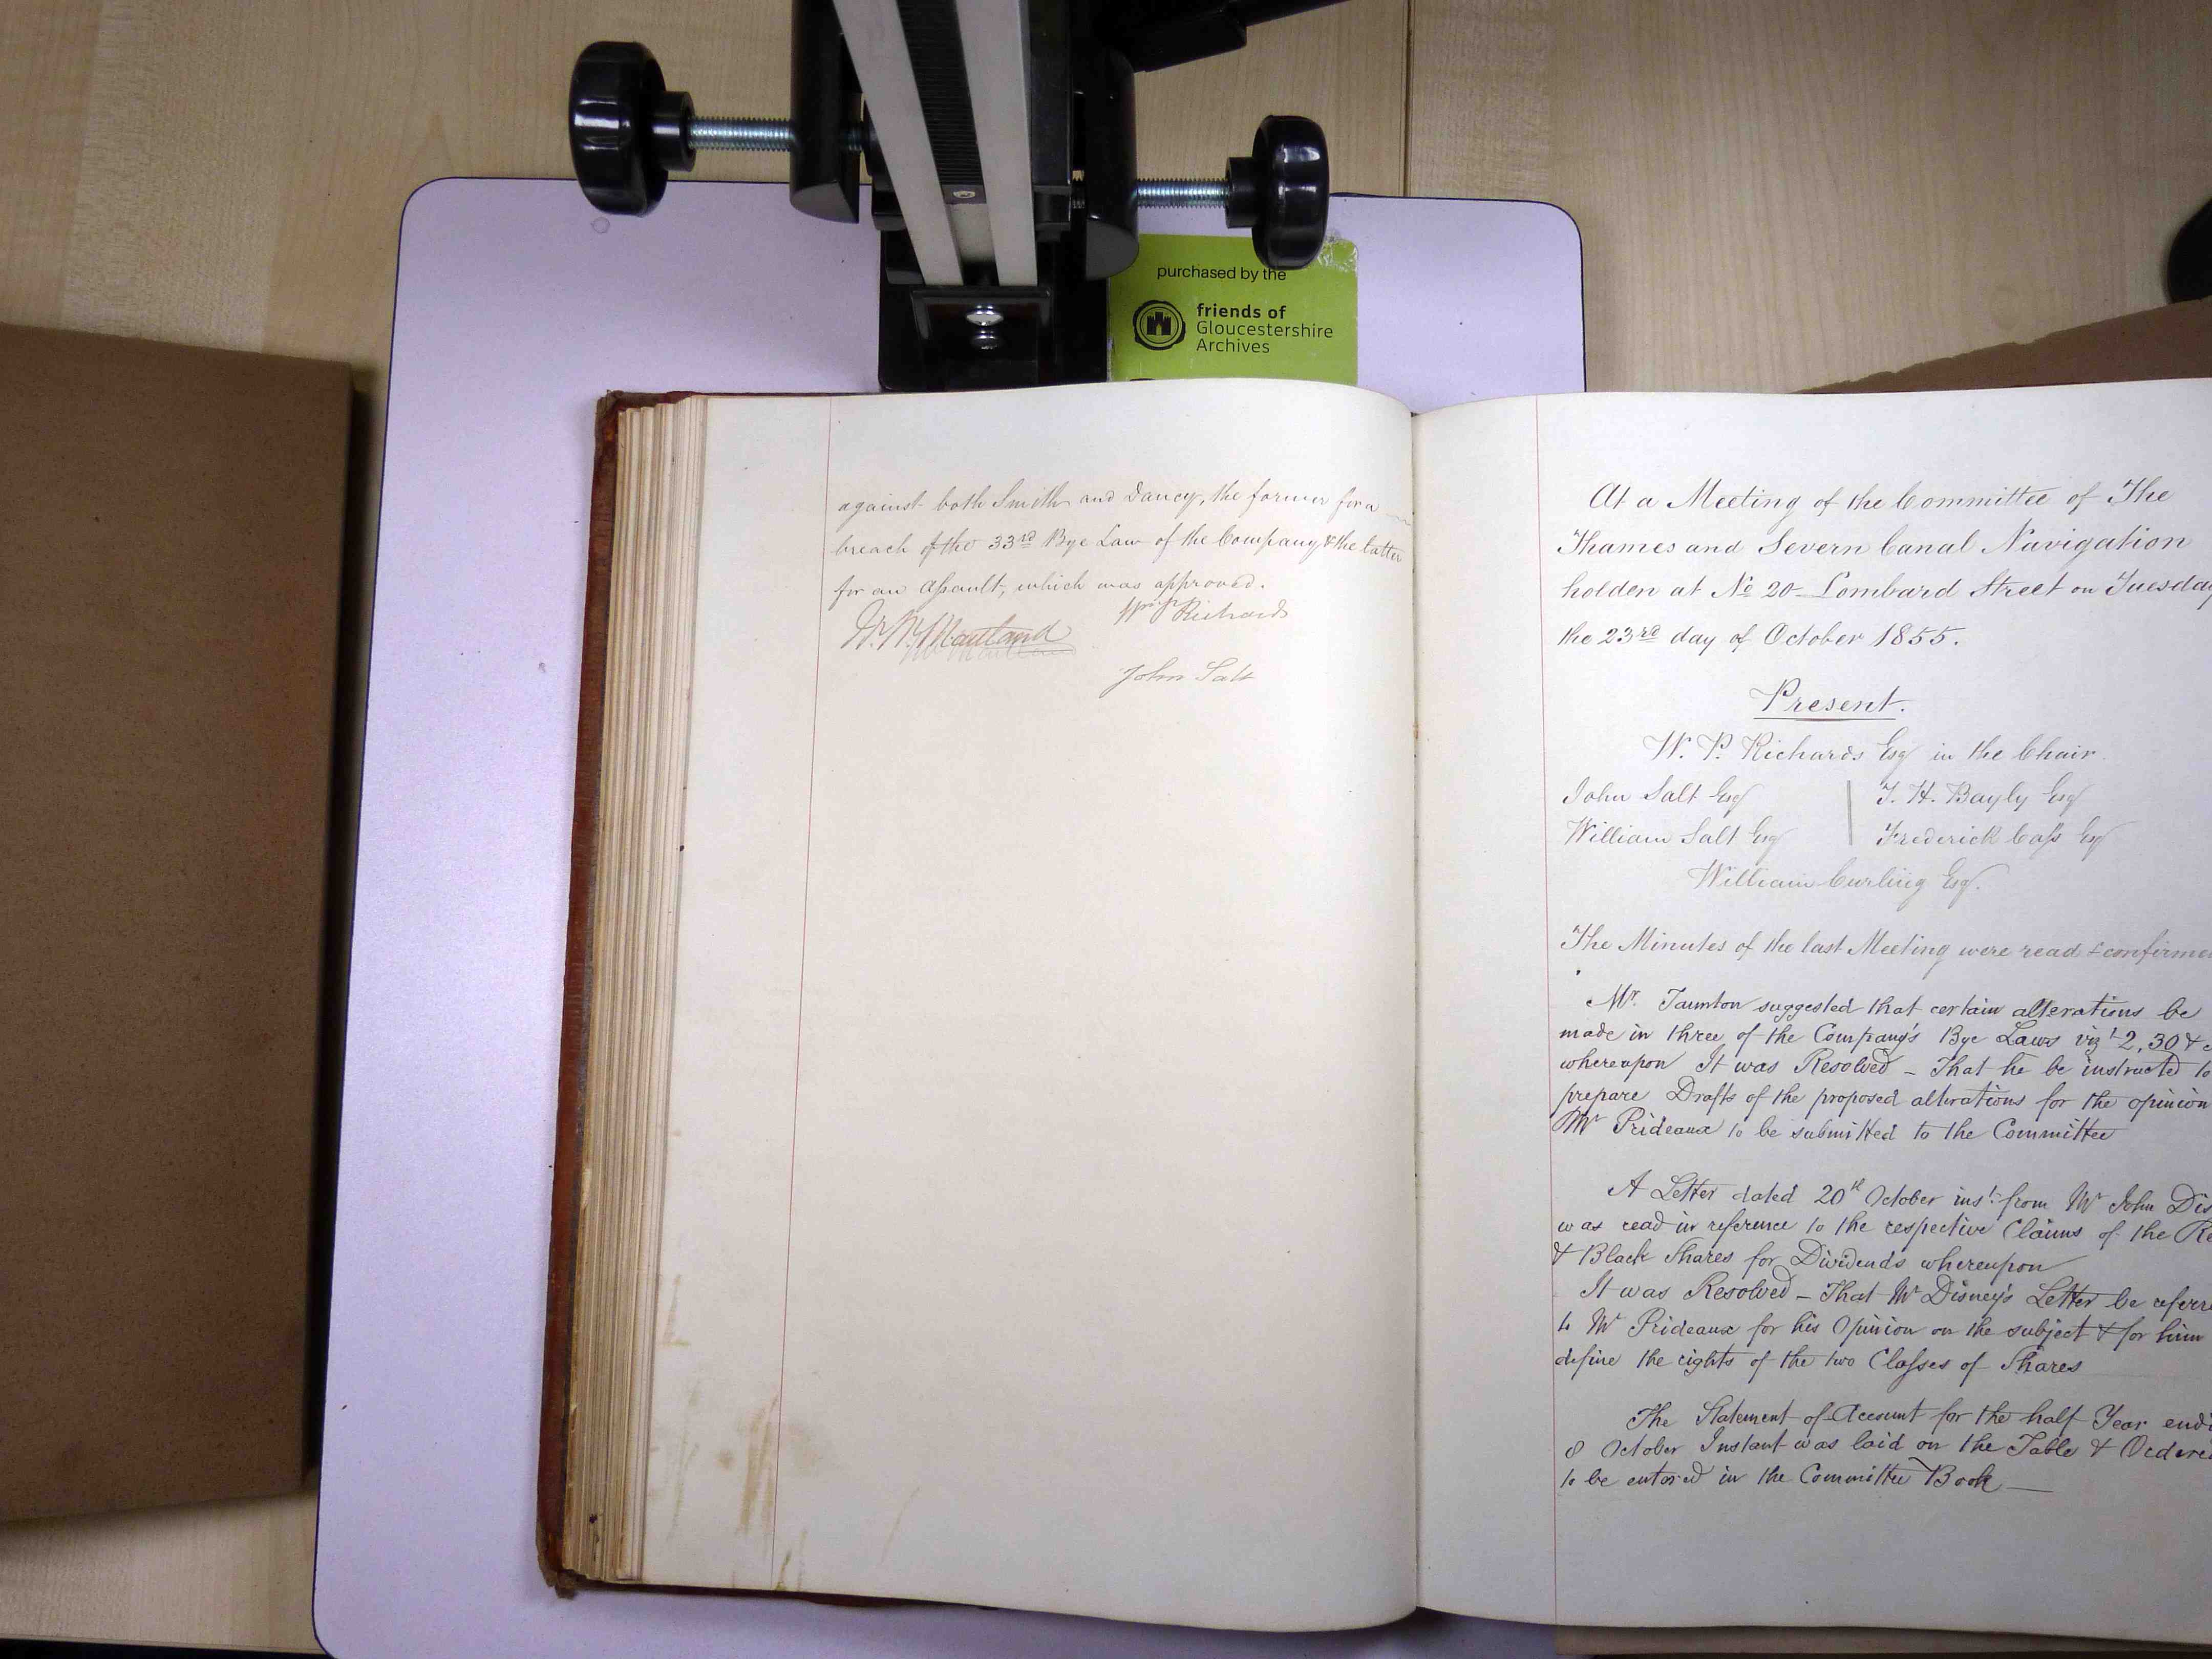 purchased by the
friends of
Gloucestershire
Archives
against both Smith and Dancy, the former for a
breach of the 33rd Bye Law of the Company & the latter
for an Assault, which was approved.
Wm P Richards
W. W. Maitland
John Salt
At a Meeting of the Committee of The
Thames and Severn Canal Navigation
holden at No 20 Lombard Street on Tuesday
the 23rd day of October 1855.
Present.
W. P. Richards Esq in the Chair.
John Salt Esq
T. H. Bayly Esq
William Salt Esq
Frederick Cass Esq
William Curling Esq.
The Minutes of the last Meeting were read & confirme
Mr. Taunton suggested that certain alterations be
made in three of the Company's Bye Laws vizt 2, 30 &
whereupon It was Resolved – That he be instructed to
prepare Drafts of the proposed alterations for the opinion
Mr Prideaux to be submitted to the Committee
A Letter dated 20th October inst: from Mr John Dis
was read in reference to the respective Claims of the Re
& Black Shares for Dividends whereupon
It was Resolved – That Mr Disney's Letter be referre
to Mr Prideaux for his Opinion on the subject & for him
define the rights of the two Classes of Shares
The Statement of Account for the half Year endi
8 October Instant was laid on the Table & Ordered
to be entered in the Committee Book —